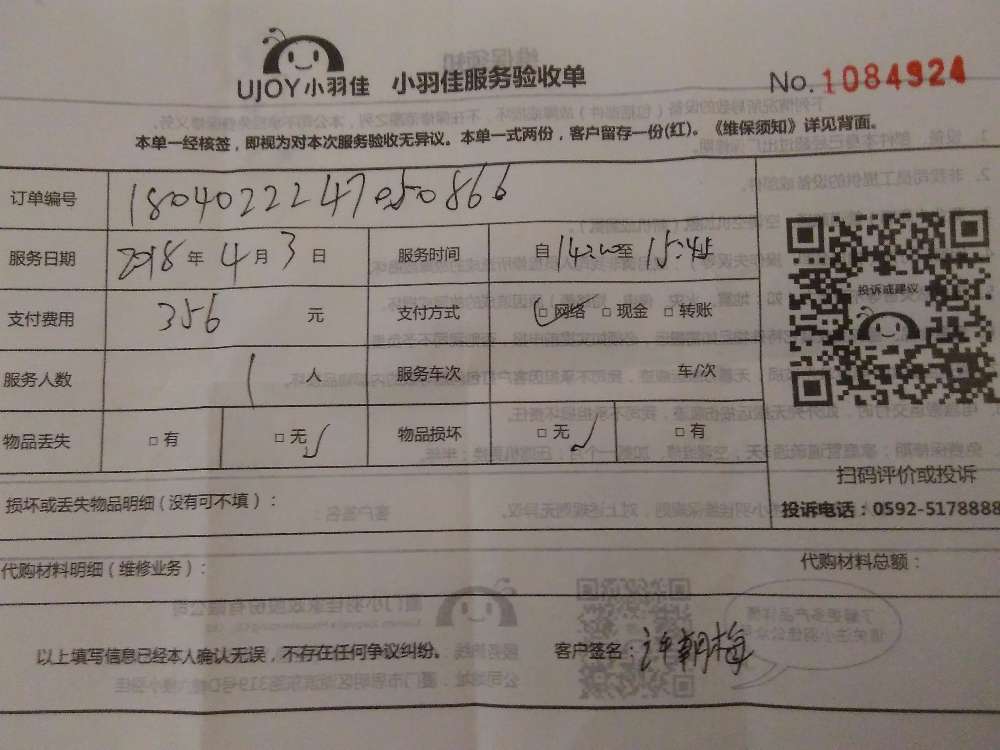 UJOY小羽佳 小羽佳服务验收单 No.1084924
本单一经核签，即视为对本次服务验收无异议。本单一式两份，客户留存一份(红)。《维保须知》详见背面。
订单编号 18040222247050866
服务日期 2018年4月3日 服务时间 自14:20至15:45
支付费用 356 元 支付方式 □网络 □现金 □转账
投诉或建议
服务人数 1 人 服务车次 车/次
物品丢失 □有 □无√ 物品损坏 □无√ □有
扫码评价或投诉
损坏或丢失物品明细(没有可不填)：
投诉电话：0592-5178888
代购材料明细(维修业务)： 代购材料总额：
以上填写信息已经本人确认无误，不存在任何争议纠纷。 客户签名：许朝梅